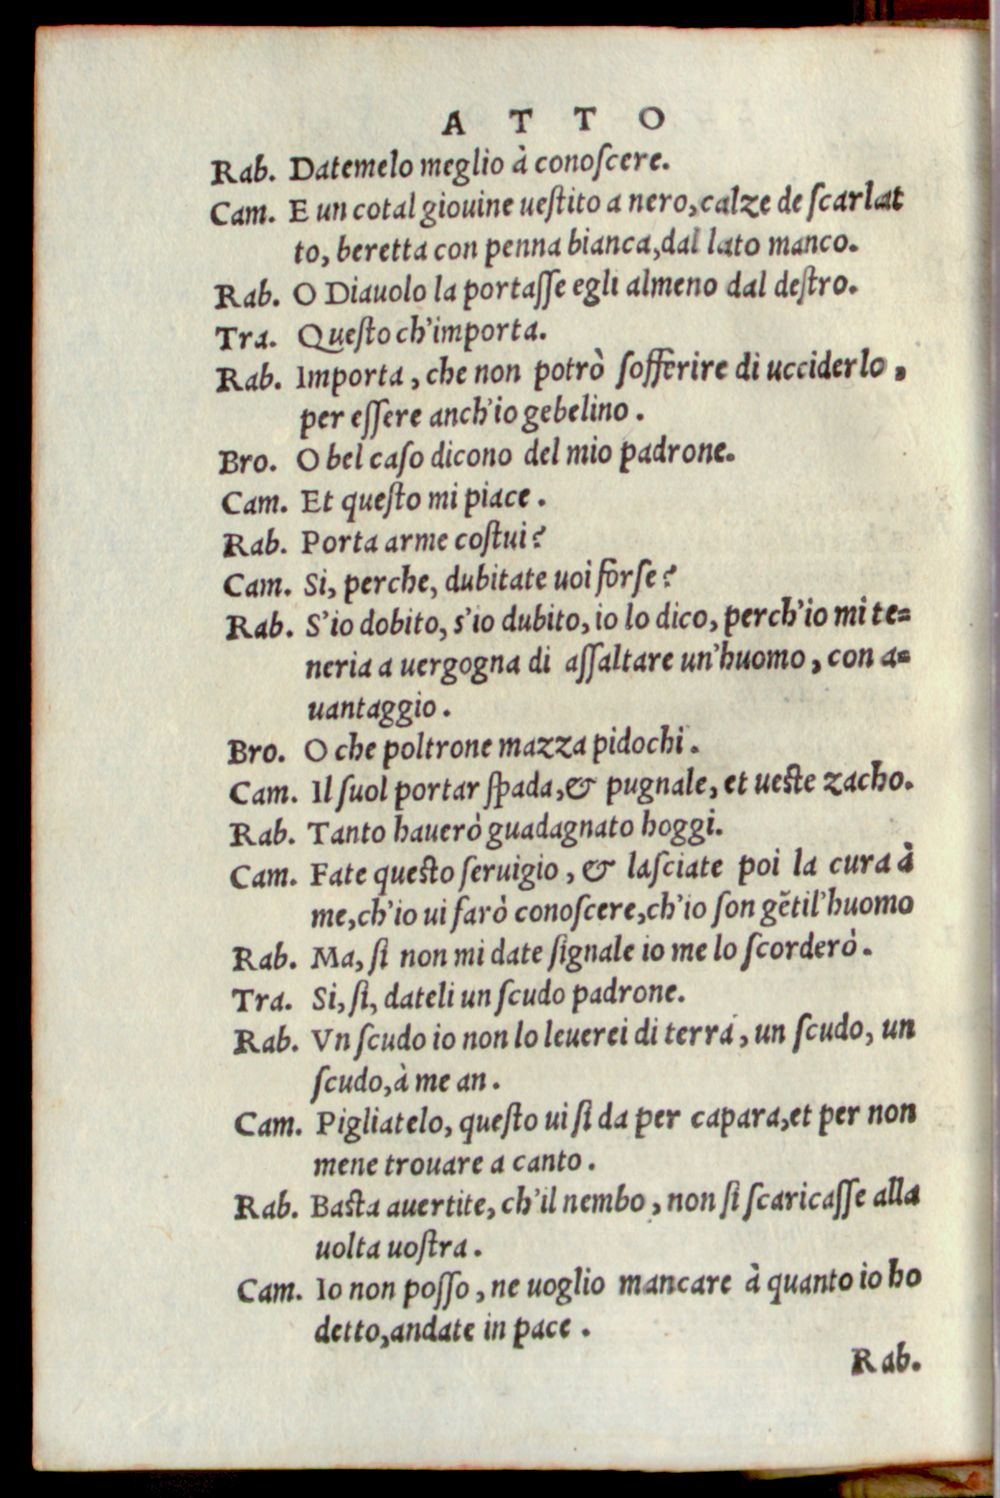 A T T O
Rab. Datemelo meglio à conoſcere.
Cam. E un cotal giouine ueſtito a nero, calze de ſcarlat
to, beretta con penna bianca, dal lato manco.
Rab. O Diauolo la portaſſe egli almeno dal deſtro.
Tra. Queſto ch'importa.
Rab. Importa, che non potrò ſofferire di ucciderlo,
per eſſere anch'io gebelino.
Bro. O bel caſo dicono del mio padrone.
Cam. Et queſto mi piace.
Rab. Porta arme coſtui?
Cam. Si, perche, dubitate uoi forſe?
Rab. S'io dobito, s'io dubito, io lo dico, perch'io mi te=
neria a uergogna di aſſaltare un'huomo, con a=
uantaggio.
Bro. O che poltrone mazza pidochi.
Cam. Il ſuol portar ſpada, & pugnale, et ueſte zacho.
Rab. Tanto hauerò guadagnato hoggi.
Cam. Fate queſto ſeruigio, & laſciate poi la cura à
me, ch'io ui farò conoſcere, ch'io ſon gẽtil'huomo
Rab. Ma, ſi non mi date ſignale io me lo ſcorderò.
Tra. Si, ſi, dateli un ſcudo padrone.
Rab. Vn ſcudo io non lo leuerei di terra, un ſcudo, un
ſcudo, à me an.
Cam. Pigliatelo, queſto ui ſi da per capara, et per non
mene trouare a canto.
Rab. Baſta auertite, ch'il nembo, non ſi ſcaricaſſe alla
uolta uoſtra.
Cam. Io non poſſo, ne uoglio mancare à quanto io ho
detto, andate in pace.
Rab.